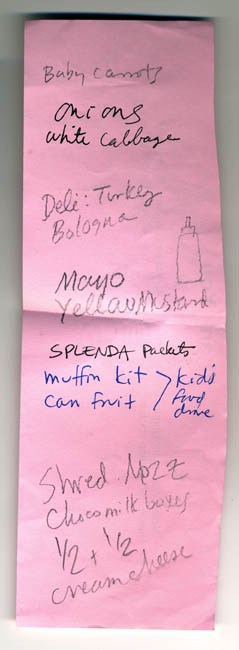 Baby Carrots
onions
white cabbage
Deli: Turkey
Bologna
Mayo
Yellow Mustard
SPLENDA Packets
muffin kit > kid's
can fruit food
drive
Shred. Mozz
Choco milk boxes
1/2 + 1/2
cream cheese